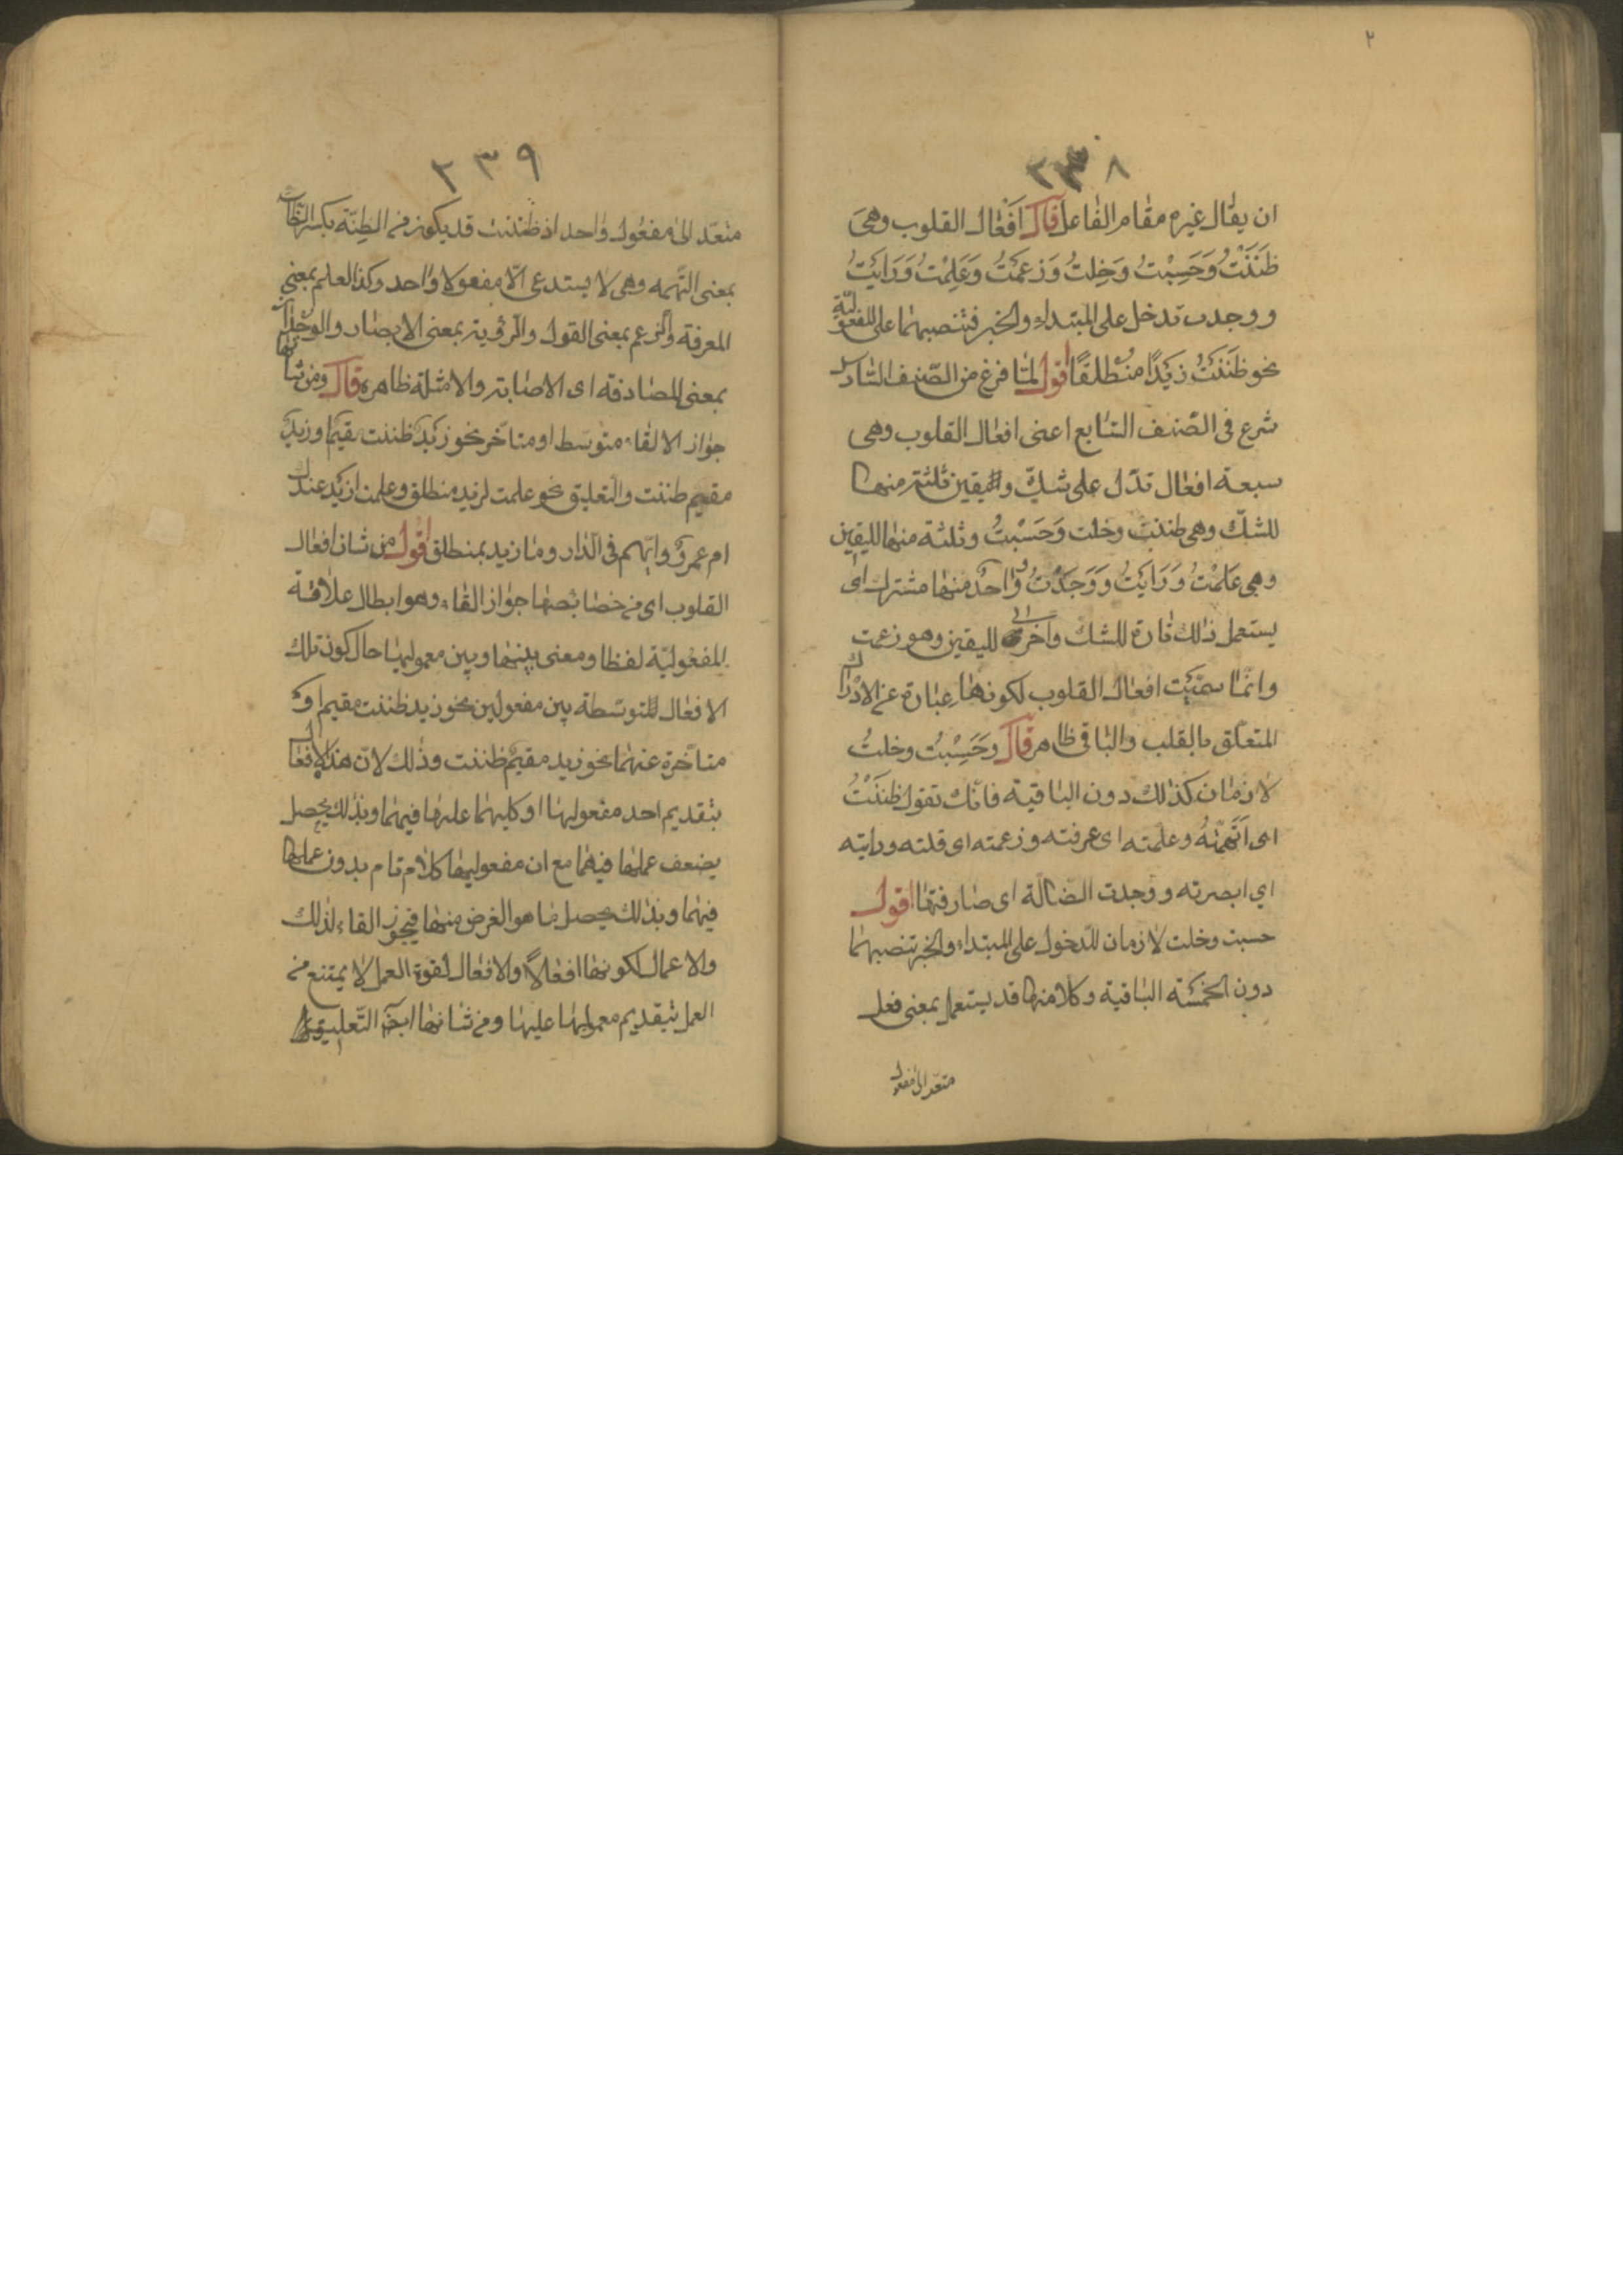 ٢
٢٣٨
ان يقال غيره مقام الفاعل قال اَفْعَال القلوب وهىَ
ظَنَنْتُ وَحَسِبْتُ وَخِلتُ وَزعَمْتُ وَعَلِمْتُ وَرَايْتُ
ووجدت تدخل على المبتداء والخبر فتنصبهما على المفعوليّة
نحو ظَنَنْتُ زيَدًا منُطلقًا اقول لمّا فرغ من الصّنف السّادس
شرع فى الصّنف السّابع اعنى افعال القلوب وهى
سبعة افعال تدّل على شكّ ويقين ثلثة منها
للشكّ وهى ظننت وخلت وَحَسْبتُ وثلثة منها لليقين
وهى عَلِمْتُ وَرَايْتُ وَوَجَدْتُ وواحد منها مشترك اى
يستعمل ذالك تارة للشكّ واخرى لليقين وهو زعمت
وانمّا سمّيت افعال القلوب لكونها عبارة عن الادراك
المتعلّق بالقلب والباقى ظاهر قال وحَسِبْتُ وخلتُ
لازمان كذالك دون الباقية فانّك تقول ظنَنْتُ
اى اَتّهَمْتُهُ وعلمته اى عرفته وزعمته اى قلته ورايته
اي ابصرته ووجدت الضالّة اى صادفتها اقول
حسبت وخلت لازمان للدّخول على المبتداء والخبر تنصبهما
دون الخمسَة الباقية وكلا منها قد يستعمل بمعنى فعل
متعّد الى مفعول
٢٣٩
متعّد الى مفعُول واحد اذ ظننت قد يكون من الظِنّة بكسر الظاء
بمعنى التّهمه وهى لا يستدعى الّا مفعولا واحد وكذا العلم بمعنى
المعرفة والزعم بمعنى القول والرؤية بمعنى الابصار والوجدان
بمعنى المصادفة اى الاصابة والامثلة ظاهرة قال ومن شانها
جواز الالقاء متوسّط او متاخّر نحو زيد ظننت مقيم او زيد
مقيم ظننت والتعليق نحو علمت لزيد منطلق وعلمت ازيد عندك
ام عمرو وايّهم فى الدّار وما زيد بمنطلق اقول من شان افعال
القلوب اى من خصايصها جواز القاء وهو ابطال علاقة
المفعوليّة لفظا ومعنى بينها وبين معموليها حال كون تلك
الافعال المتوسّطة بين مفعولين نحو زيد ظننت مقيم او
متاخّرة عنهما نحو زيد مقيم ظننت وذلك لانّ هذه الافعال
بتقديم احد مفعوليها او كليهما عليها فيهما وبذلك يحصل
يضعف عملها فيهما مع ان مفعوليها كلام تام بدون عملها
فيهما وبذلك يحصل ما هو الغرض منها فيجوز القاء لذلك
والاعمال لكونها افعالًا والافعال لقوة العمل لا يمتنع من
العمل بتقديم معمولها عليها ومن شانها ايضًا التّعليق